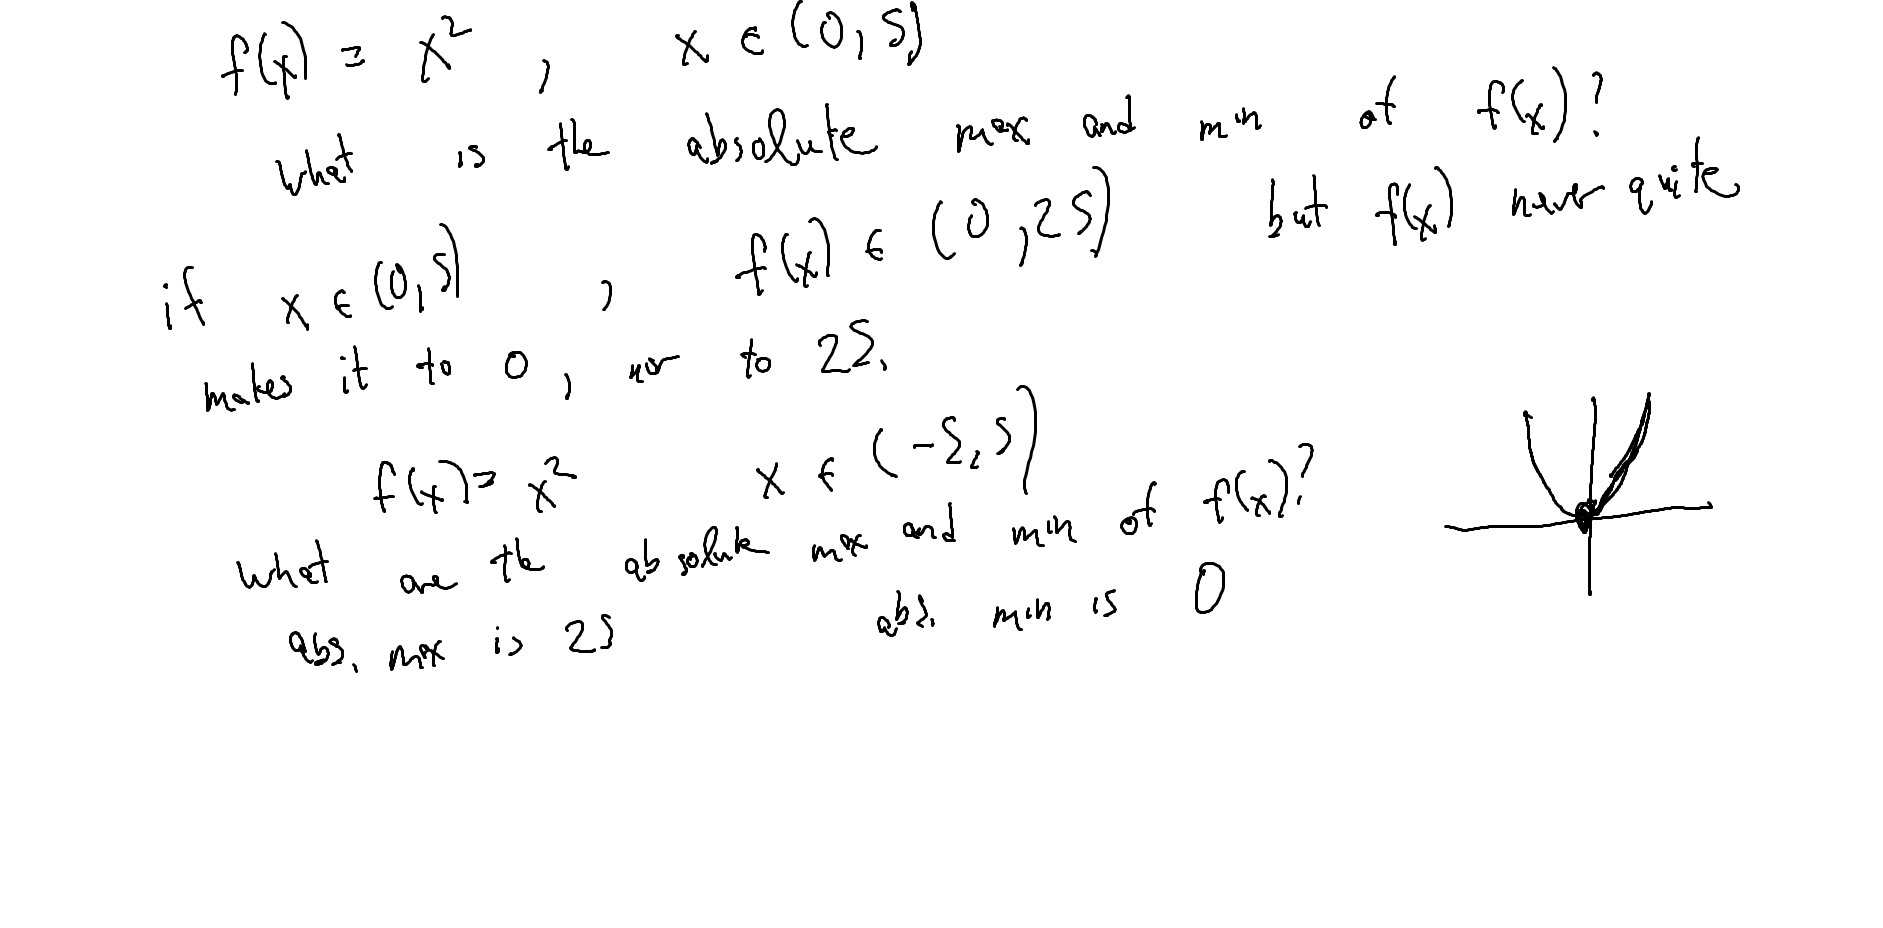 f(x) = x², x ∈ (0, 5)
what is the absolute max and min of f(x)?
if x ∈ (0, 5), f(x) ∈ (0, 25) but f(x) never quite
makes it to 0, nor to 25.
f(x) = x² x ∈ (-5, 5)
what are the absolute max and min of f(x)?
abs. max is 25 abs. min is 0